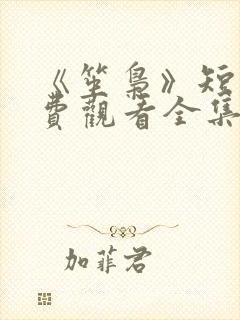 《笙梟》短
費觀看全集
加菲君